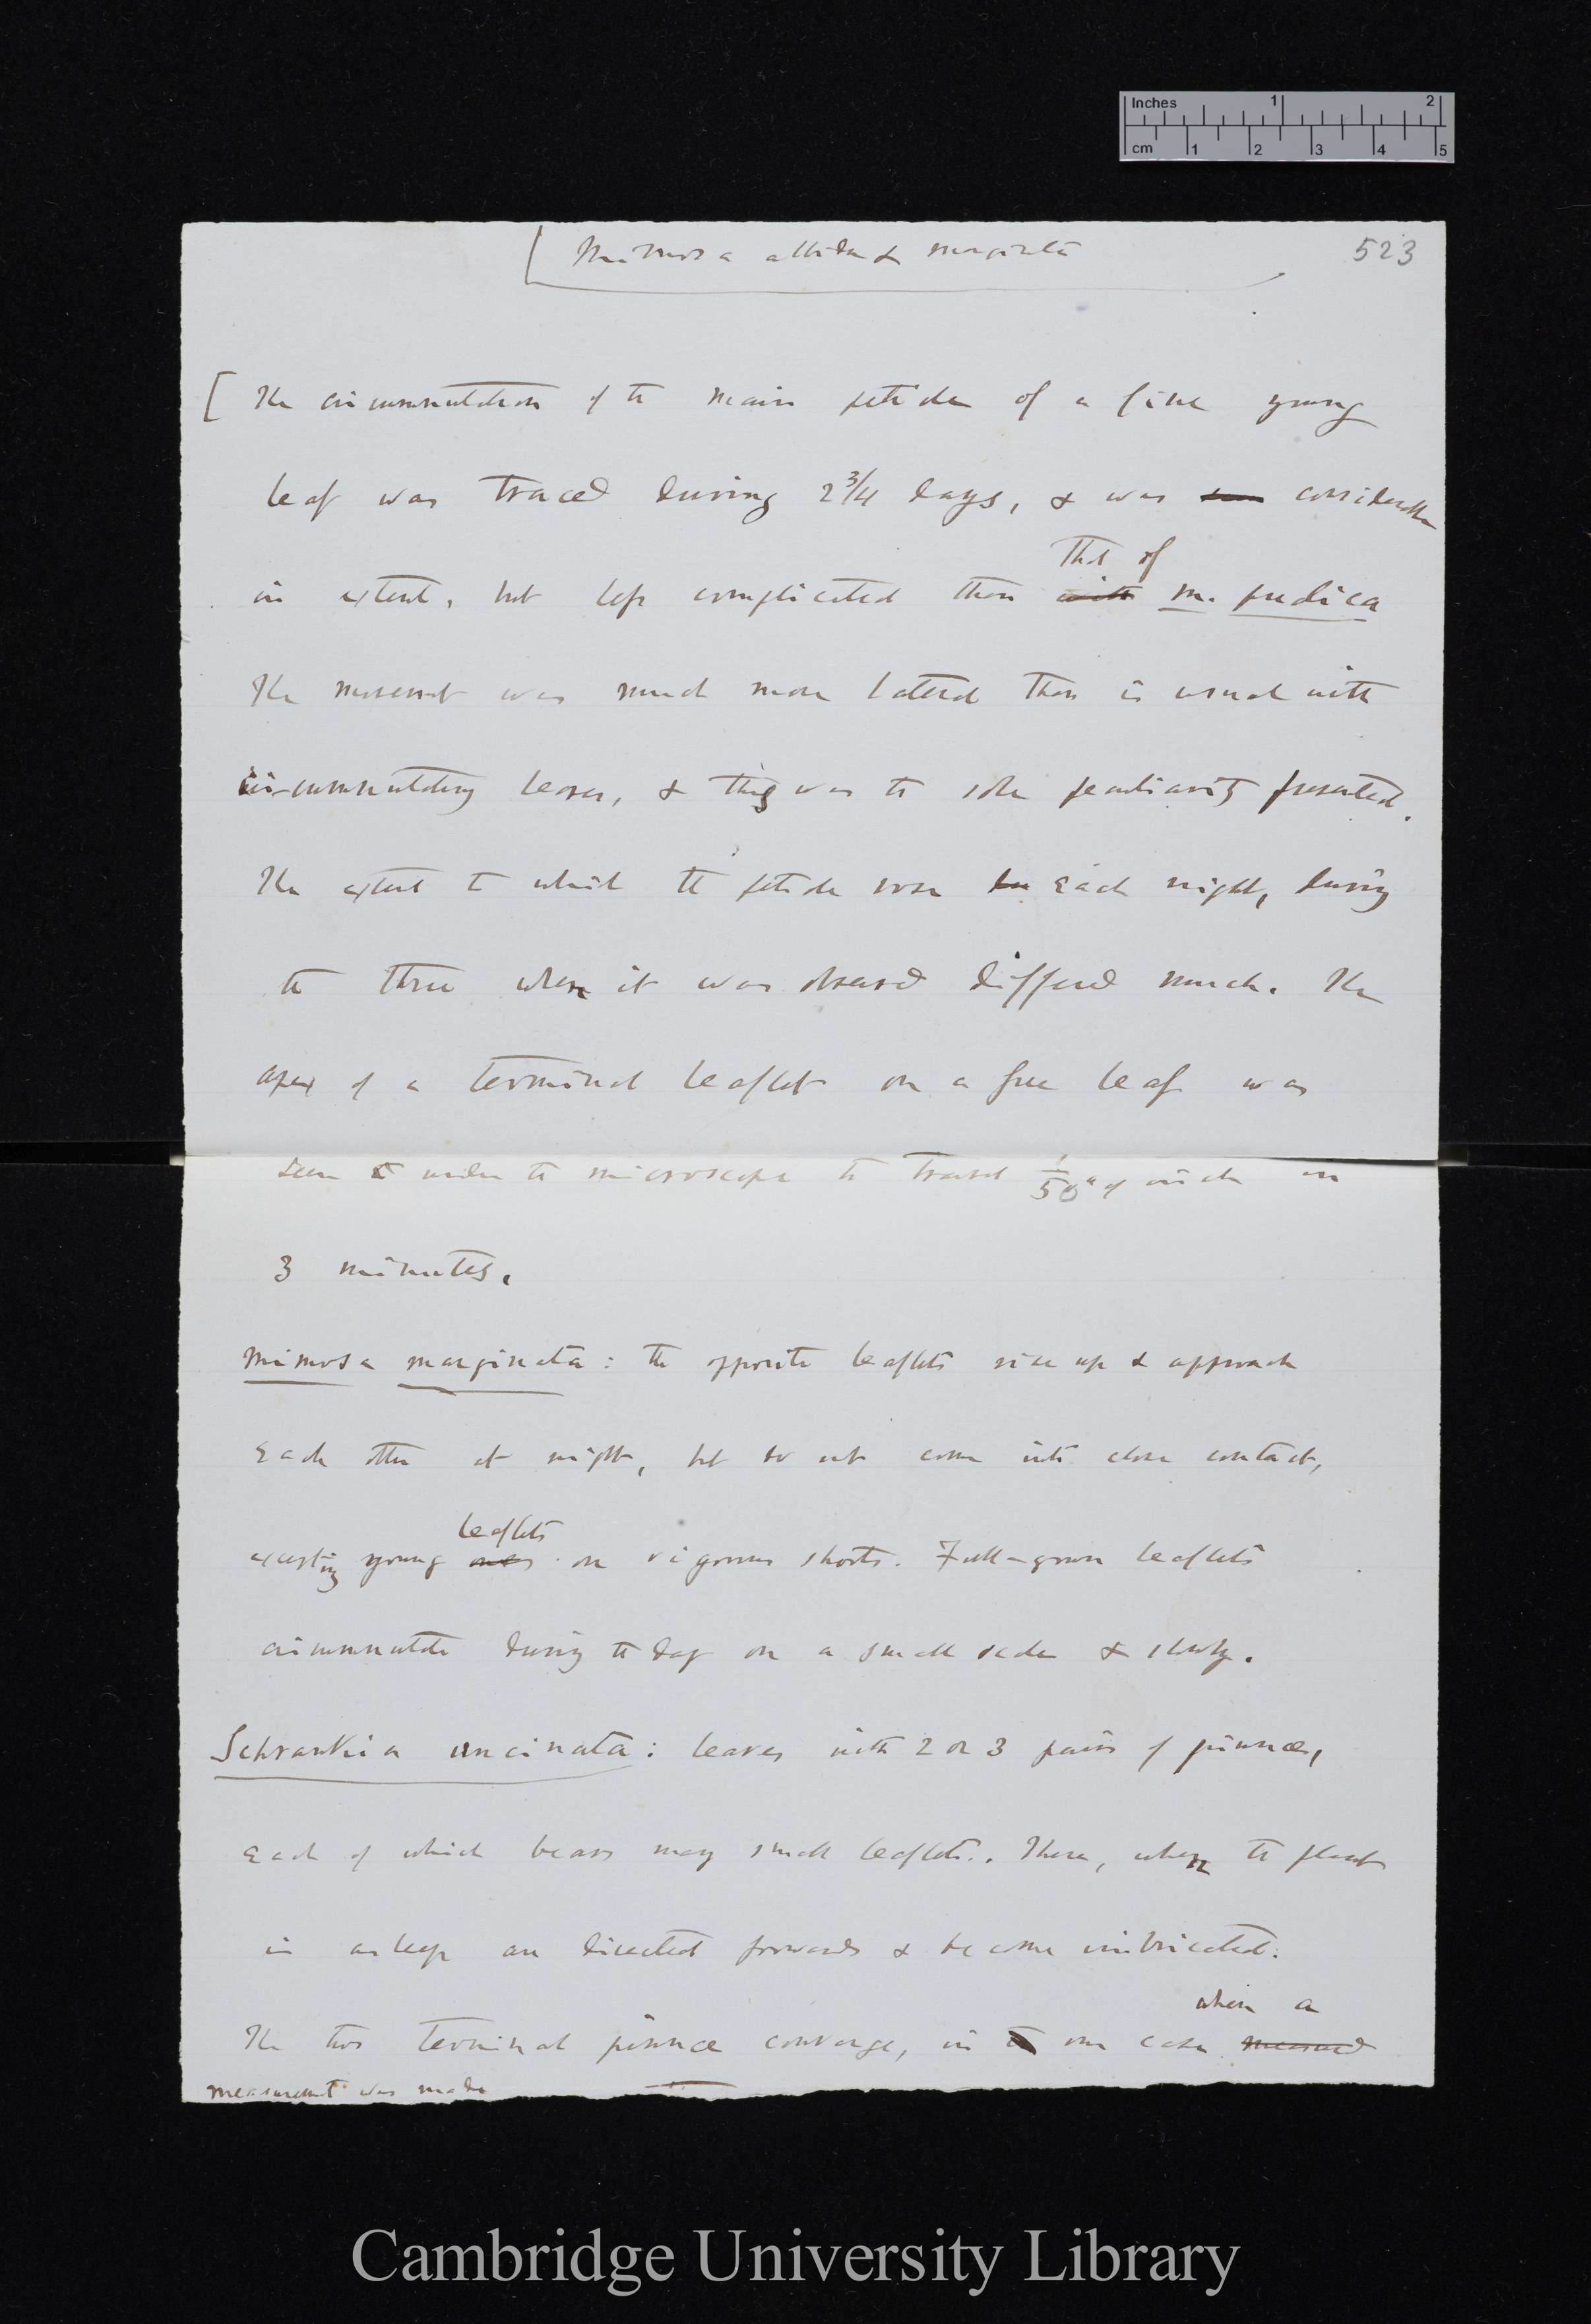 Inches 1 2
cm 1 2 3 4 5
Mimosa albida & marginata 523
[ The circumnutation of the main petiole of a fine young
leaf was traced during 2 3/4 days, & was considerable
that of
in extent, but less complicated than with M. pudica
The movement was much more lateral than is usual with
circumnutating leaves, & this was the sole peculiarity presented.
The extent to which the petiole rose each night, during
the three when it was observed differed much. The
apex of a terminal leaflet on a free leaf was
seen under the microscope to travel 1/50 of inch in
3 minutes.
Mimosa marginata: the opposite leaflets rise up & approach
each other at night, but do not come into close contact,
leaflets
excepting young ones on vigorous shoots. Full-grown leaflets
circumnutate during the day on a small scale & slowly.
Schrankia uncinata: leaves with 2 or 3 pairs of pinnæ,
each of which bears many small leaflets. These, when the plant
is asleep are directed forwards & become imbricated.
when a
The two terminal pinnæ converge, in one case measured
measurement was made
Cambridge University Library